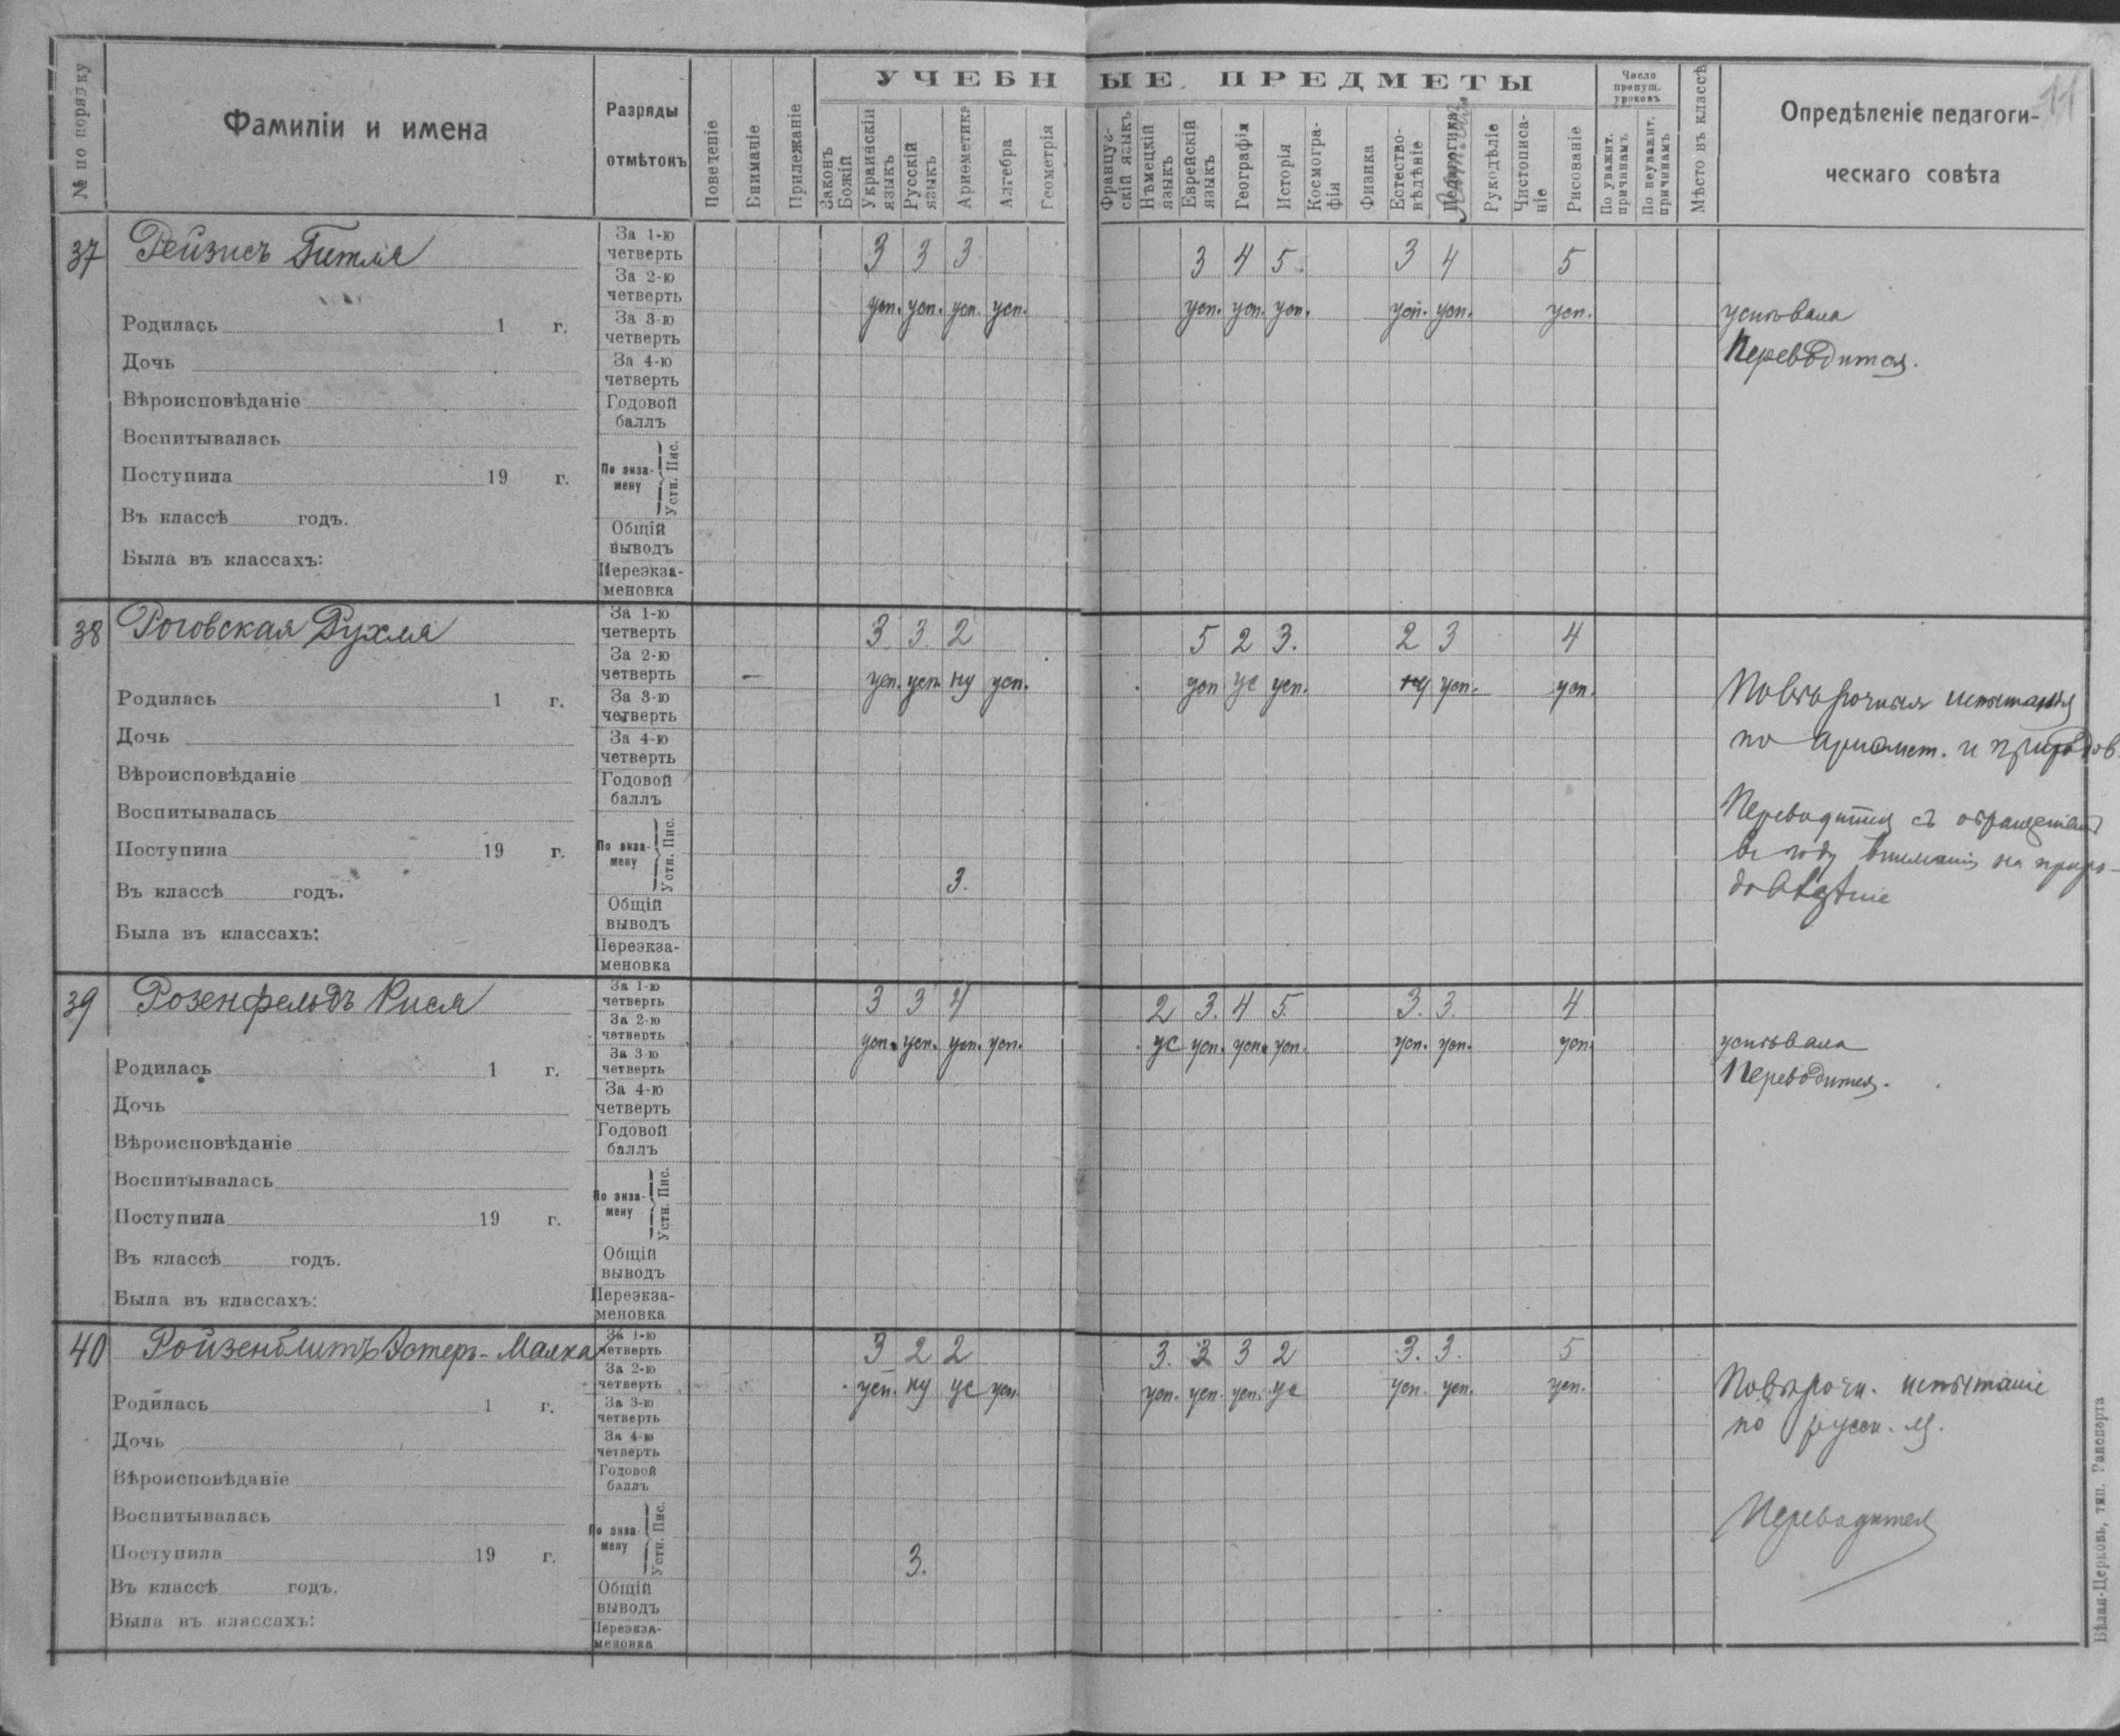 11
УЧЕБНЫЕ ПРЕДМЕТЫ
№ по порядку
Фамиліи и имена
Разряды
отмѣтокъ
Поведеніе
Вниманіе
Прилежаніе
Законъ Божій
Украинскій языкъ
Русскій языкъ
Ариѳметика
Алгебра
Геометрія
Француз-
скій языкъ
Нѣмецкій языкъ
Еврейскій языкъ
Географія
Исторія
Космогра-
фія
Физика
Естество-
вѣдѣніе
Педагогика
Рукодѣліе
Чистописа-
ніе
Рисованіе
Число
пропущ.
уроковъ
По уважит. причинамъ
По неуважит. причинамъ
Мѣсто въ классѣ
Опредѣленіе педагоги-
ческаго совѣта
37 Рейзисъ Гитля
Родилась 1 г.
Дочь
Вѣроисповѣданіе
Воспитывалась
Поступила 19 г.
Въ классѣ годъ.
Была въ классахъ:
За 1-ю
четверть 3 3 3 3 4 5. 3 4 5
За 2-ю
четверть усп. усп. усп. усп. усп. усп. усп. усп. усп. усп.
За 3-ю
четверть
За 4-ю
четверть
Годовой
баллъ
По экза-
мену
Устн. Пис.
Общій
выводъ
Переэкза-
меновка
успѣвала
Переводится.
38 Роговская Рухля
Родилась 1 г.
Дочь
Вѣроисповѣданіе
Воспитывалась
Поступила 19 г.
Въ классѣ годъ.
Была въ классахъ:
За 1-ю
четверть 3. 3. 2 5 2 3. 2 3 4
За 2-ю
четверть — усп. усп. ну усп. усп ус усп. ну усп. усп.
За 3-ю
четверть
За 4-ю
четверть
Годовой
баллъ
По экза-
мену
Устн. Пис.
3.
Общій
выводъ
Переэкза-
меновка
Повторочныя испытанія
по ариѳмет. и природов.
Переводится съ обращеніемъ
въ году вниманія на приро-
довѣдѣніе
39 Розенфельдъ Рися
Родилась 1 г.
Дочь
Вѣроисповѣданіе
Воспитывалась
Поступила 19 г.
Въ классѣ годъ.
Была въ классахъ:
За 1-ю
четверть 3 3 4 2 3. 4 5. 3. 3. 4
За 2-ю
четверть усп. усп. усп. усп. ус усп. усп. усп. усп. усп. усп.
За 3-ю
четверть
За 4-ю
четверть
Годовой
баллъ
По экза-
мену
Устн. Пис.
Общій
выводъ
Переэкза-
меновка
успѣвала
Переводится.
40 Ройзенблитъ Эстеръ-Малка
Родилась 1 г.
Дочь
Вѣроисповѣданіе
Воспитывалась
Поступила 19 г.
Въ классѣ годъ.
Была въ классахъ:
За 1-ю
четверть 3 2 2 3. 3 3 2 3. 3. 5
За 2-ю
четверть усп. ну ус усп. усп. усп. усп. ус усп. усп. усп.
За 3-ю
четверть
За 4-ю
четверть
Годовой
баллъ
По экза-
мену
Устн. Пис.
3.
Общій
выводъ
Переэкза-
меновка
Повѣрочн. испытаніе
по русск. яз.
Переводится
Бѣлая-Церковь, тип. Рапопорта